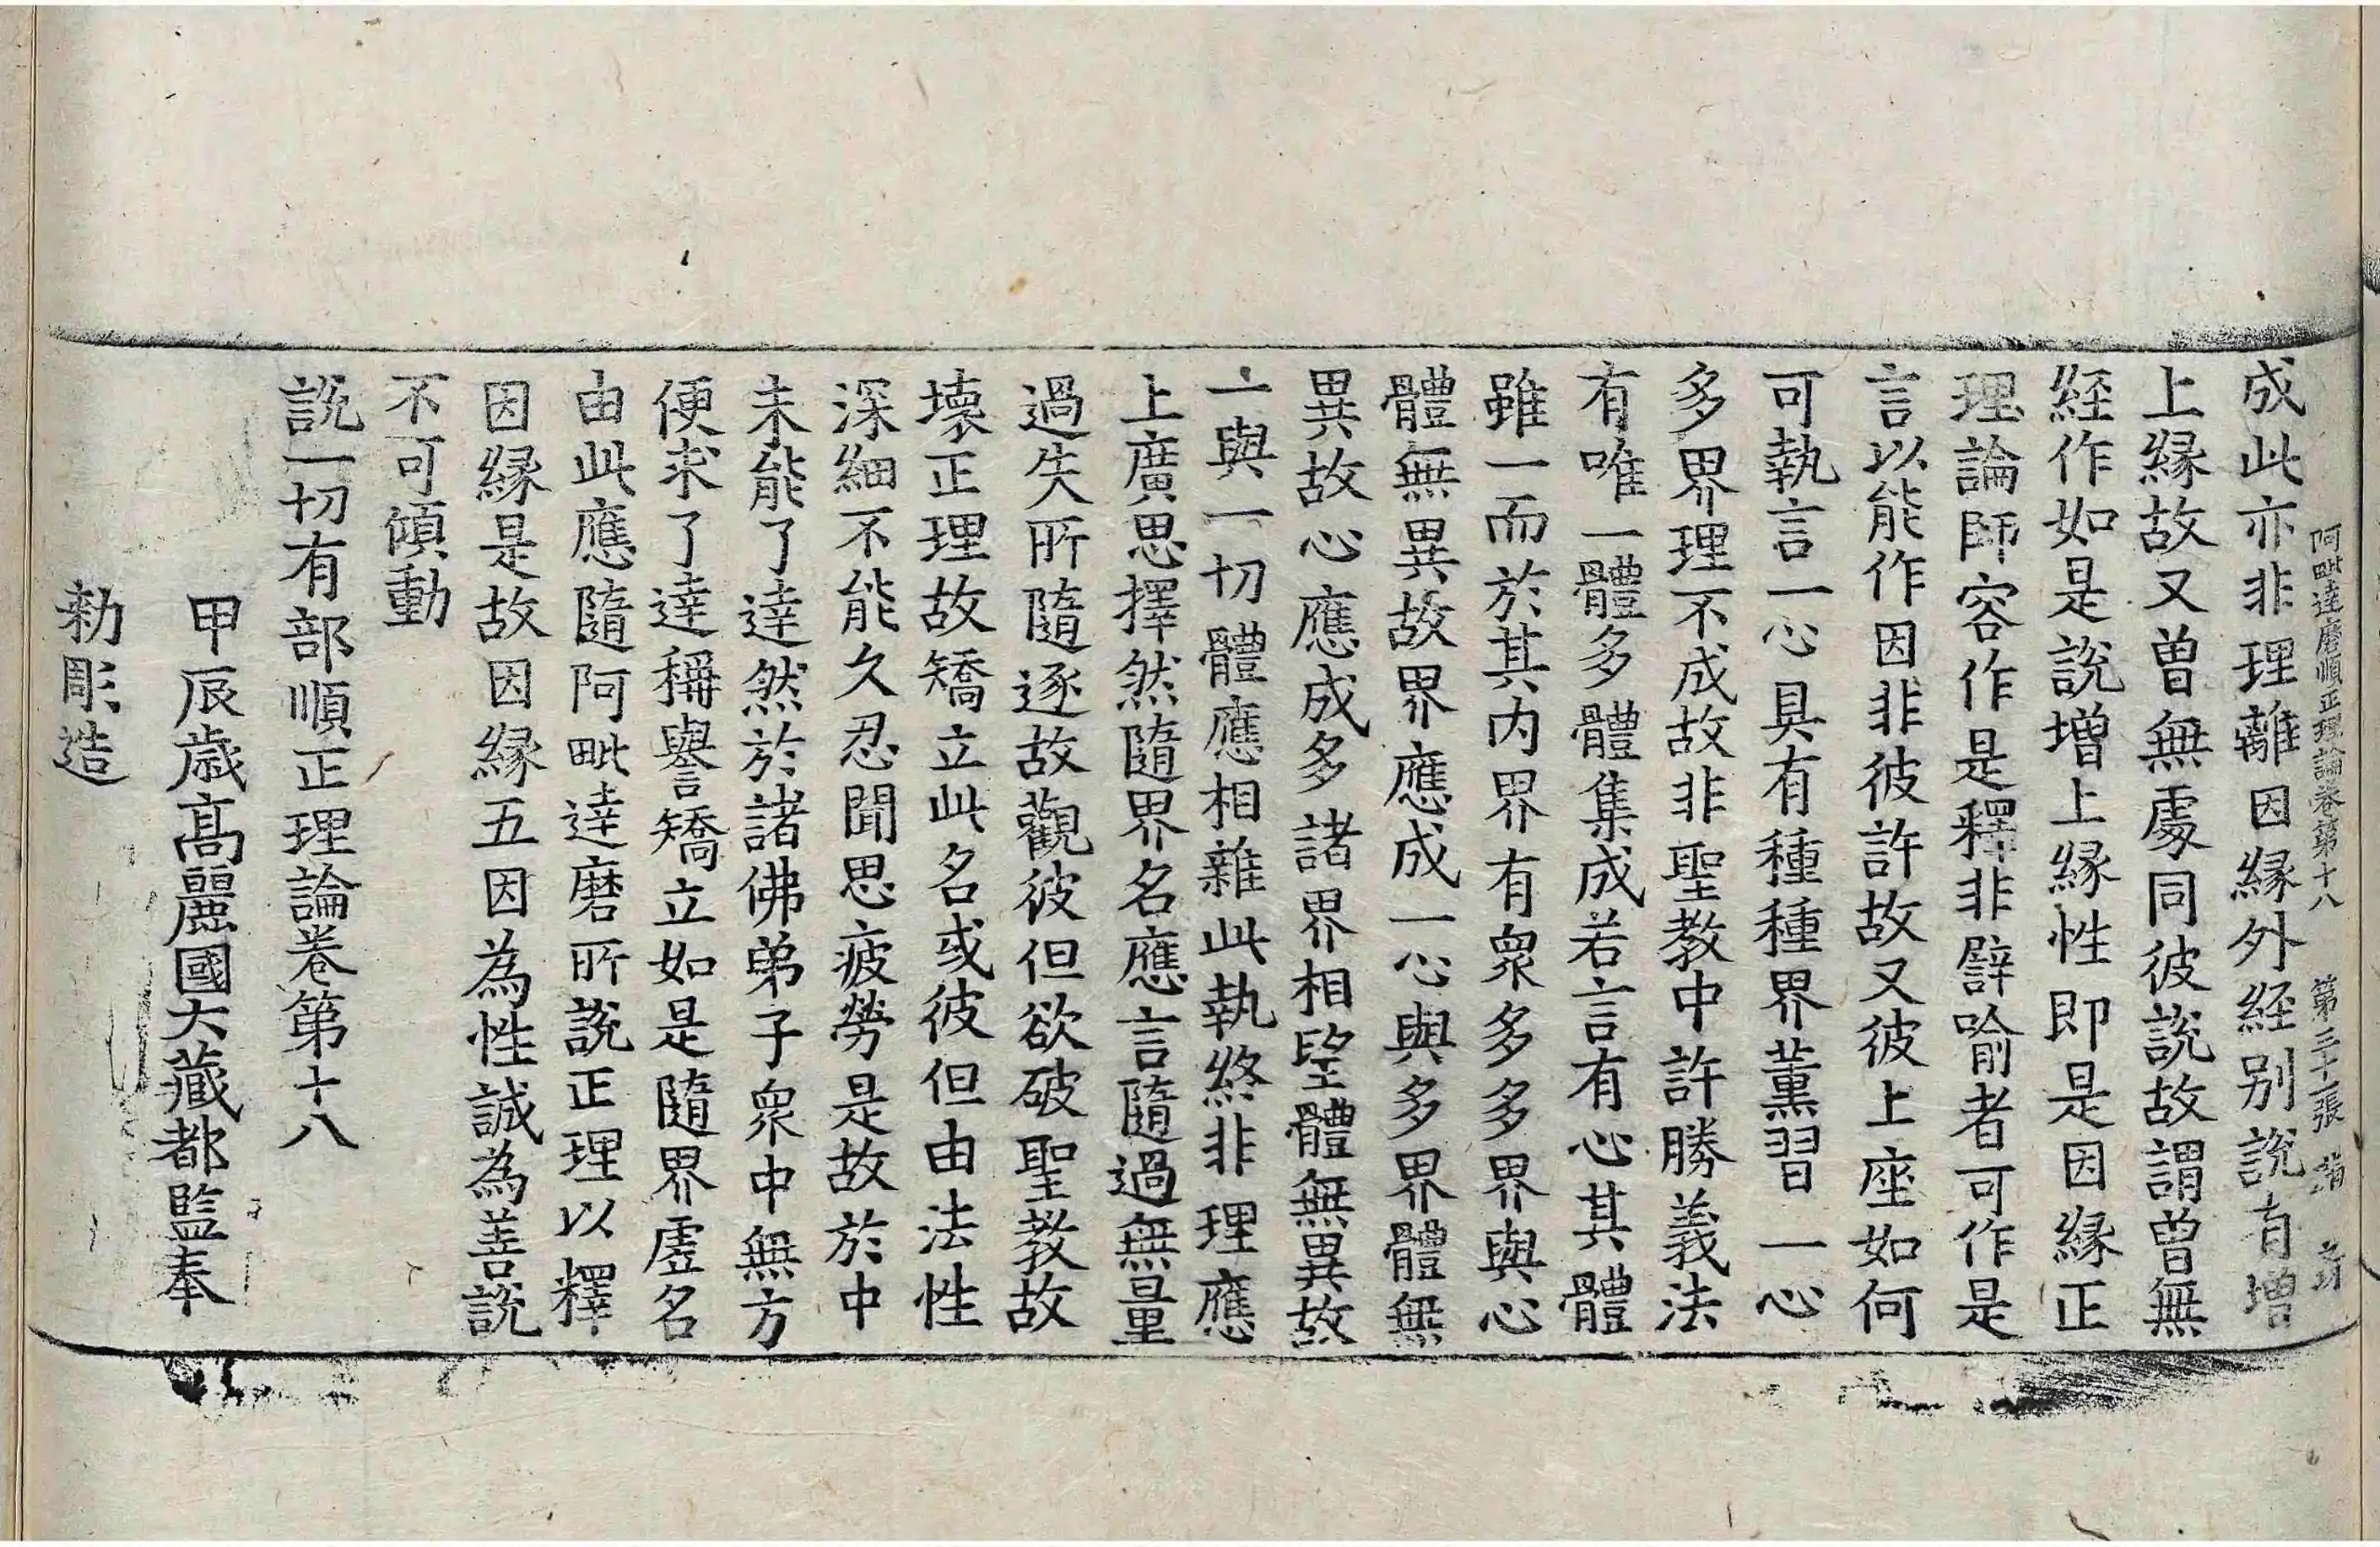 阿毗達磨順正理論卷第十八 第三十張
成此亦非理離因緣外經別說有增
上緣故又曾無處同彼說故謂曾無
經作如是說增上緣性即是因緣正
理論師容作是釋非譬喻者可作是
言以能作因非彼許故又彼上座如何
可執言一心具有種種界薰習一心
多界理不成故非聖教中許勝義法
有唯一體多體集成若言有心其體
雖一而於其內界有衆多多界與心
體無異故界應成一心與多界體無
異故心應成多諸界相望體無異故
一與一切體應相雜此執終非理應
上廣思擇然隨界名應言隨過無量
過失所隨逐故觀彼但欲破聖教故
壞正理故矯立此名或彼但由法性
深細不能久忍聞思疲勞是故於中
未能了達然於諸佛弟子衆中無方
便求了達稱譽矯立如是隨界虛名
由此應隨阿毗達磨所說正理以釋
因緣是故因緣五因為性誠為善說
不可傾動
說一切有部順正理論卷第十八
甲辰歲高麗國大藏都監奉
勅彫造